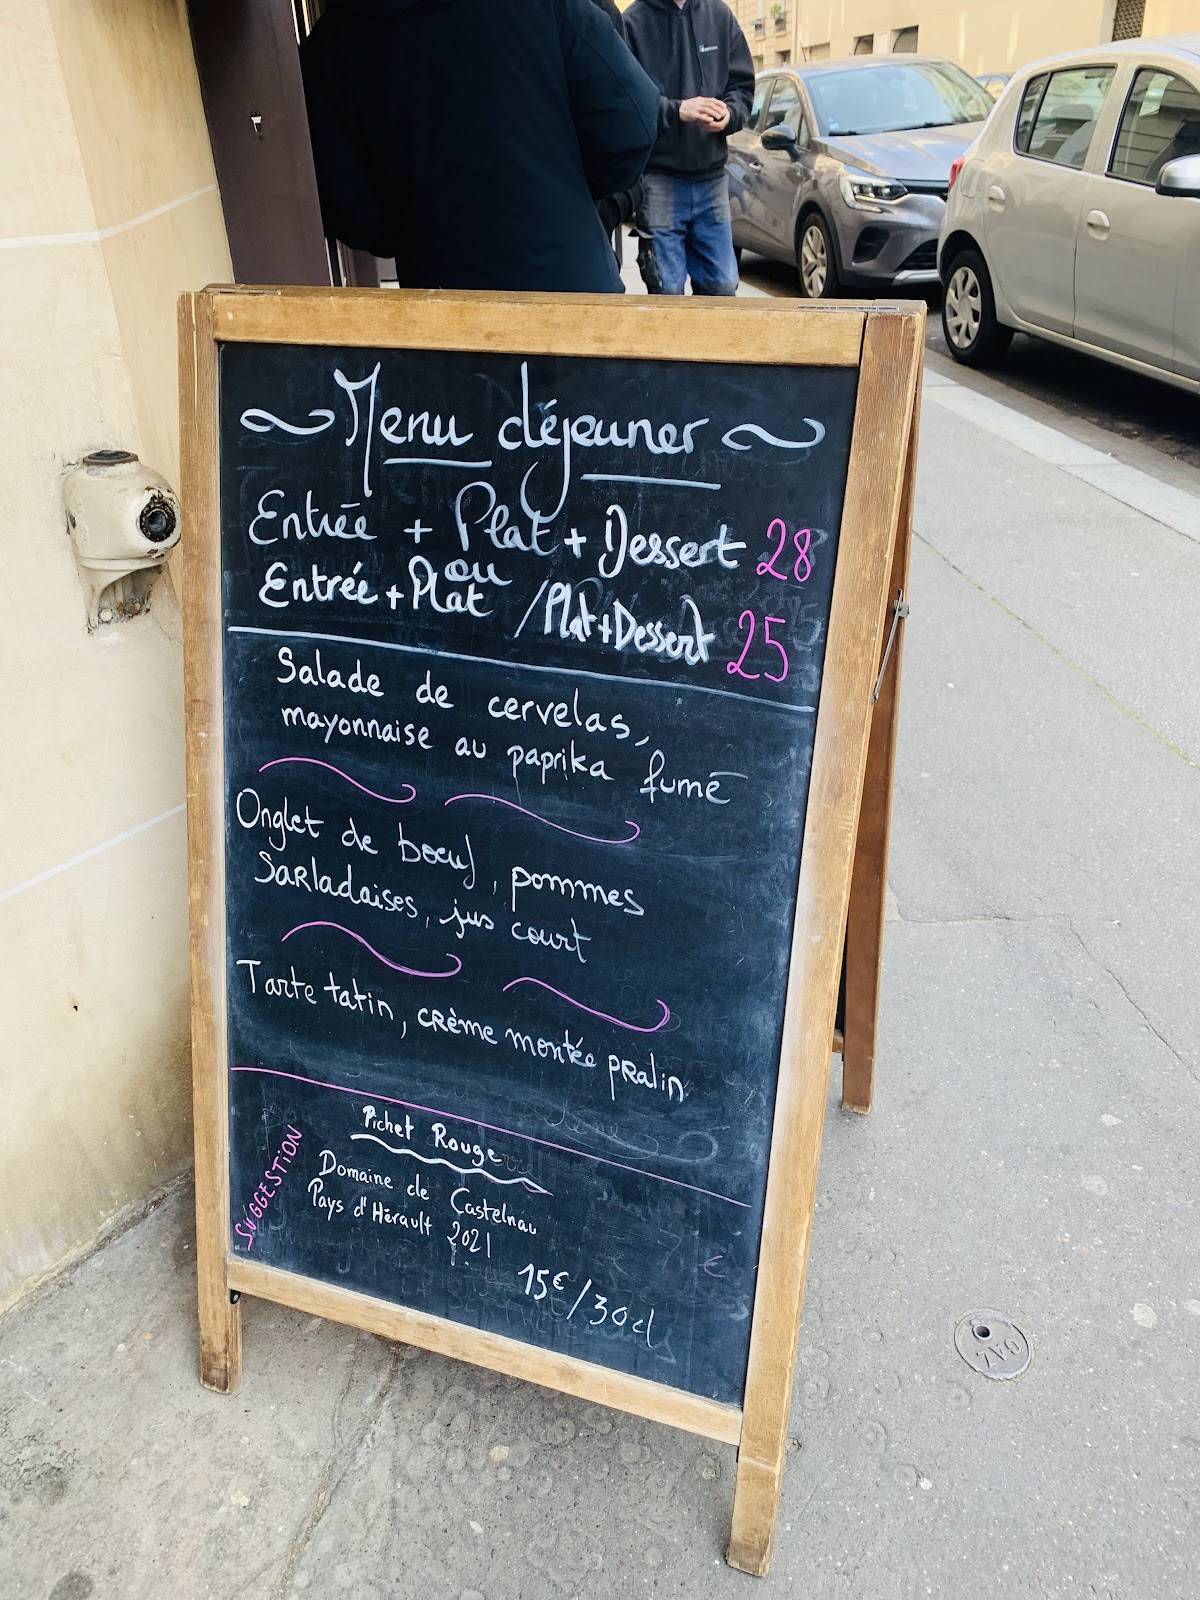 Menu déjeuner
Entrée + Plat + Dessert 28
ou
Entrée + Plat / Plat + Dessert 25
Salade de cervelas,
mayonnaise au paprika fumé
Onglet de boeuf, pommes
Sarladaises, jus court
Tarte tatin, crème montée pralin
SUGGESTION
Pichet Rouge
Domaine de Castelnau
Pays d'Hérault 2021
15€/30cl
GAZ